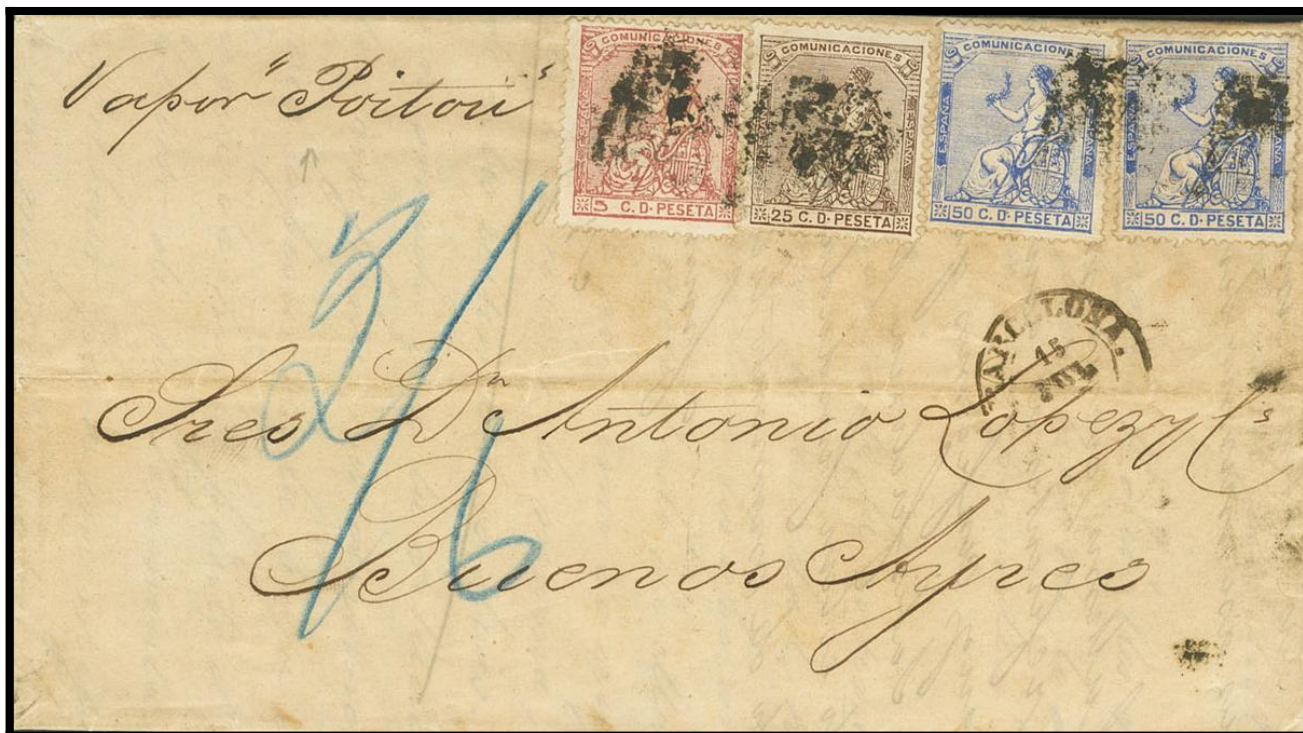 Vapor "Poitou"
COMUNICACIONES
ESPAÑA
5 C. D. PESETA
COMUNICACIONES
ESPAÑA
25 C. D. PESETA
COMUNICACIONES
ESPAÑA
50 C. D. PESETA
COMUNICACIONES
ESPAÑA
50 C. D. PESETA
BARCELONA.
15
JUL
Sres Dn Antonio Lopez y Ca
Buenos Ayres